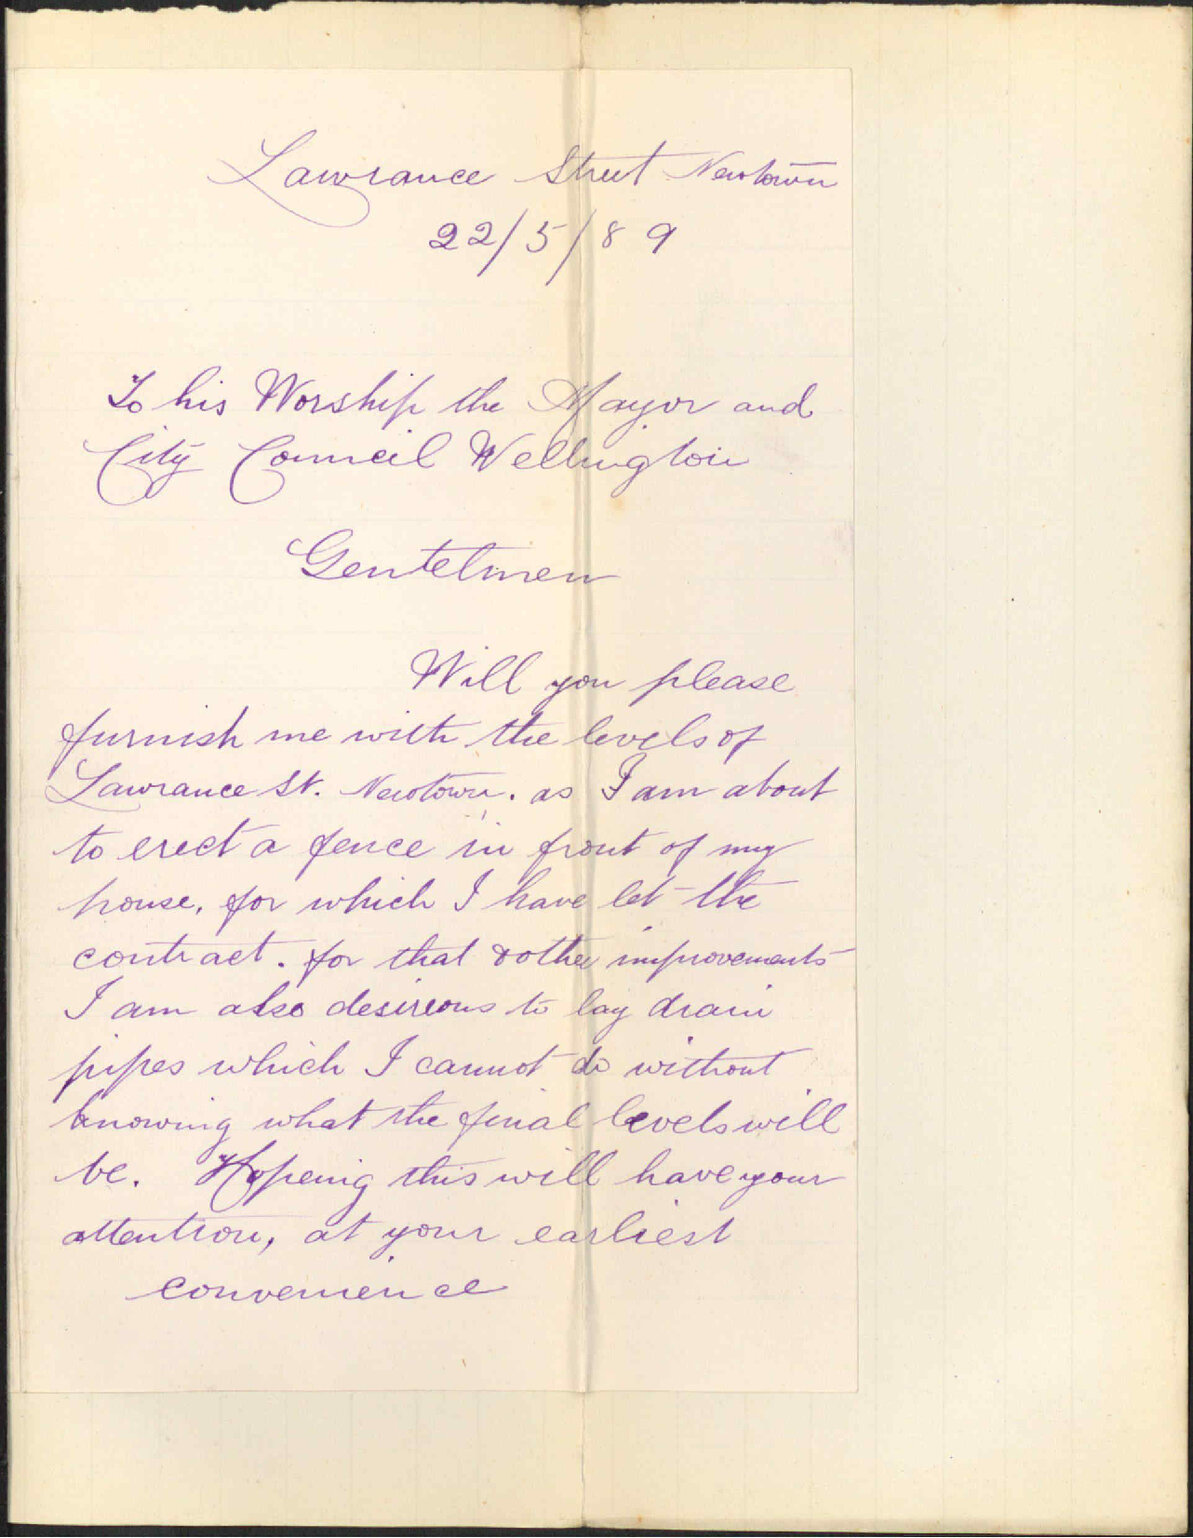 Lawrance Street Newtown
22/5/89
To his Worship the Mayor and
City Council Wellington
Gentelmen
Will you please
furnish me with the levels of
Lawrance St. Newtown. as I am about
to erect a fence in front of my
house, for which I have let the
contract. for that & other improvements
I am also desireous to lay drain
pipes which I cannot do without
knowing what the final levels will
be. Hopeing this will have your
attention, at your earliest
convenience